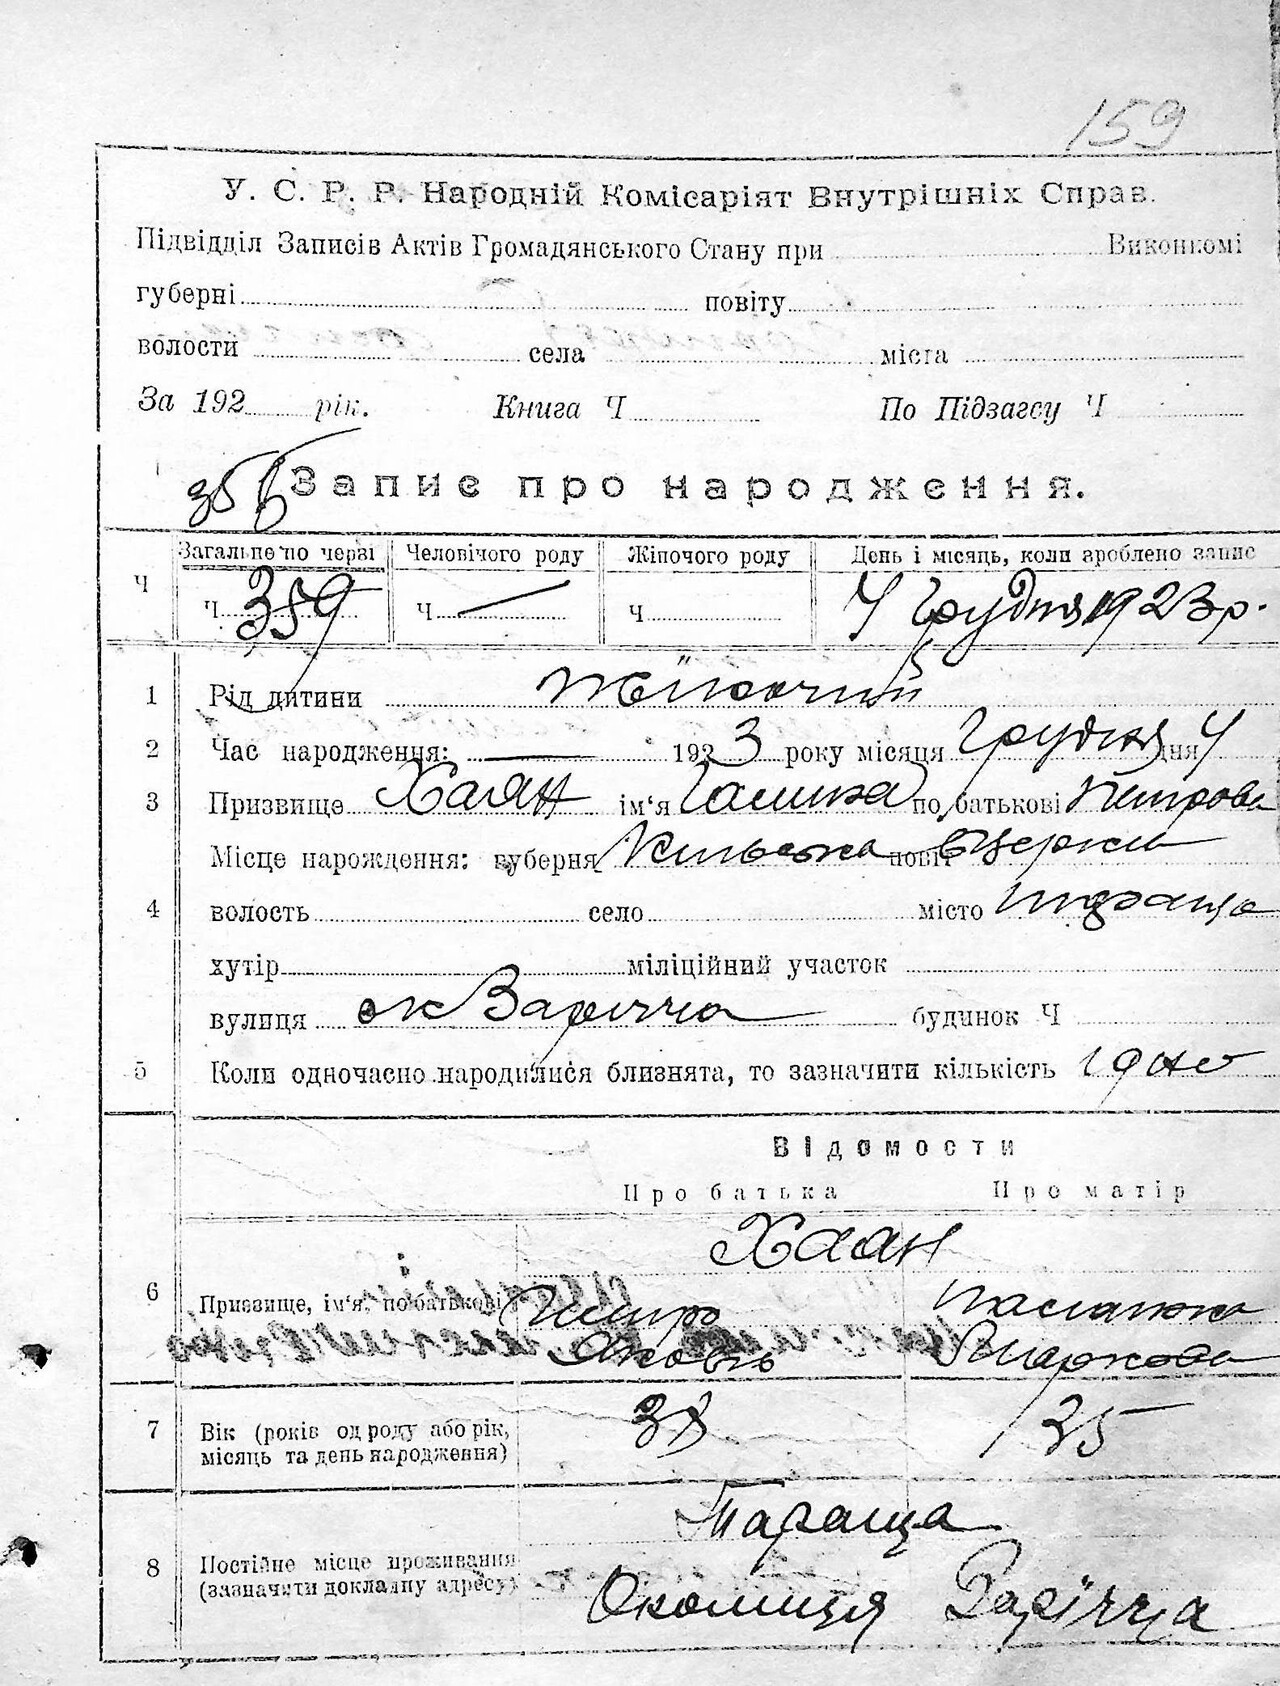 159
У. С. Р. Р. Народній Комісаріят Внутрішніх Справ.
Підвідділ Записів Актів Громадянського Стану при Виконкомі
губерні повіту
волости села міста
За 192 рік. Книга Ч По Підзагсу Ч
356 Запис про народження.
Загальне по черзі Человічого роду Жіночого роду День і місяць, коли зроблено запис
Ч Ч 359 Ч — Ч 4 Грудня 1923 р.
1 Рід дитини Жіночий
2 Час народження: — 1923 року місяця Грудня дня 4
3 Призвище Хаян ім'я Галина по батькові Петрова
Місце народження: губерня Київська повіт БЦеркы
4 волость село місто Тараща
хутір міліційний участок
вулиця ок Заріччя будинок Ч
5 Коли одночасно народилися близнята, то зазначити кількість 1 дно
Відомости
Про батька Про матір
Хаан
6 Призвище, ім'я, по батькові Петро Палажка
Яковів Маркова
7 Вік (років од роду або рік, 38 35
місяць та день народження)
Тараща
8 Постійне місце проживання
(зазначити докладну адресу) Околиця Заріччя